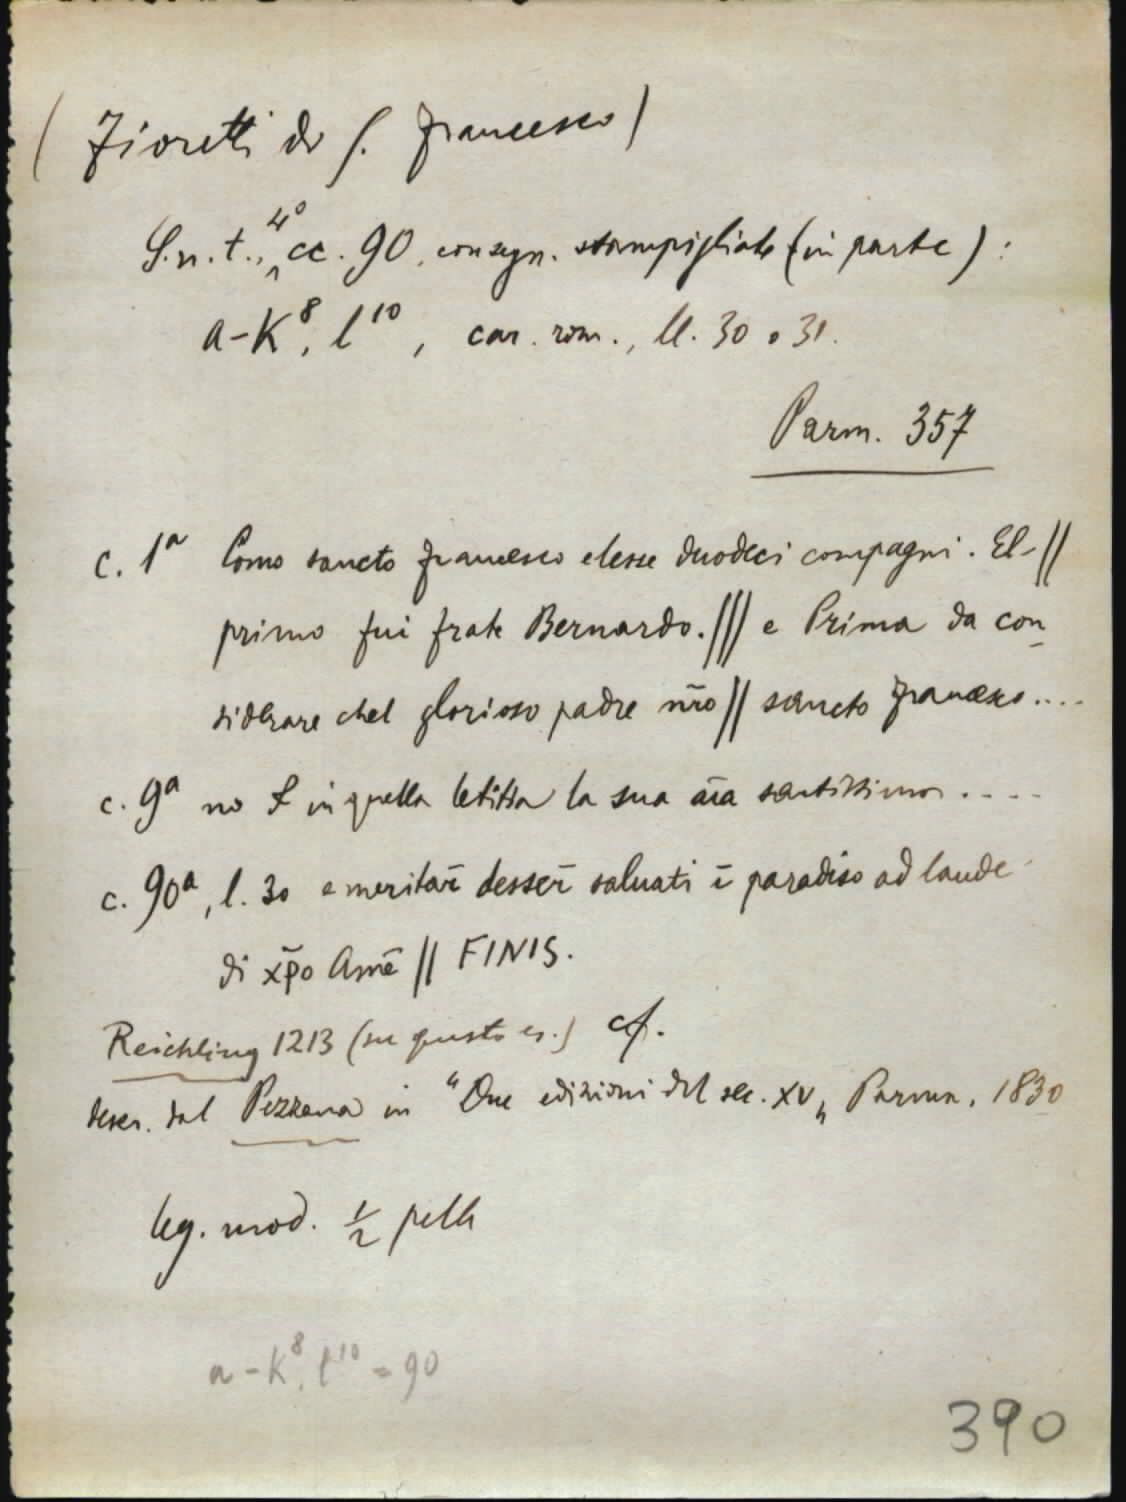 (Fioretti di S. Francesco)
S. n. t., 4° cc. 90, consegn. stampigliate (in parte):
a-K⁸, l¹⁰, car. rom., ll. 30 o 31.
Parm. 357
c. 1ª Como sancto francesco elesse duodeci compagni. El- ||
primo fui frate Bernardo. ||| e Prima da con
siderare chel glorioso padre nr̄o || sancto francesco....
c. 9ª no & in quella letitia la sua aīa santissima ....
c. 90ª, l. 30 e meritar̄ desser̄ saluati ī paradiso ad laude
di xp̄o Amē || FINIS.
Reichling 1213 (su questo es.) cf.
descr. dal Pezzana in "Due edizioni del sec. XV„ Parma, 1830
leg. mod. ½ pelle
a-K⁸, l¹⁰ = 90
390